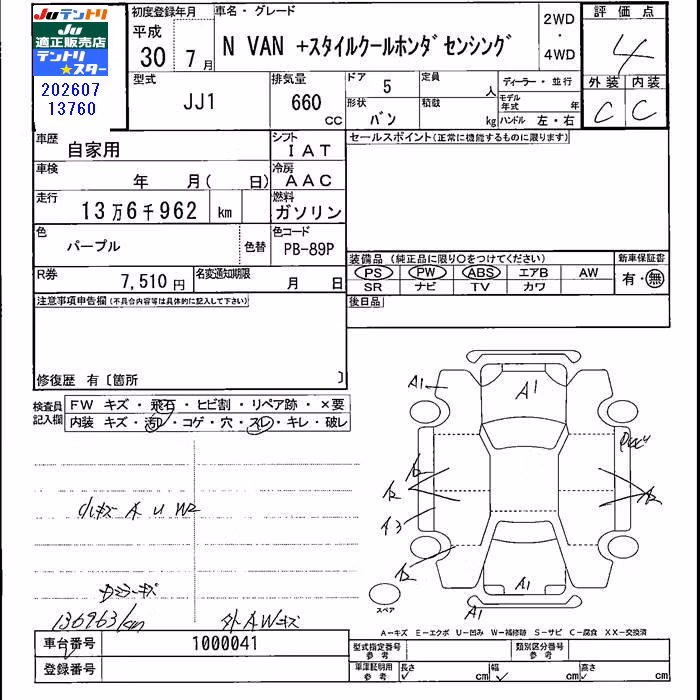 JUテントリ
JU
適正販売店
テントリ
★スター
202607
13760
初度登録年月
平成
30 7月
車名・グレード
N VAN +スタイルクールホンダセンシング
2WD
・
4WD
評価点
4
外装 内装
C C
型式
JJ1
排気量
660
CC
ドア
5
定員
人
形状
バン
積載
kg
ディーラー・並行
モデル
年式 年
ハンドル 左・右
車歴
自家用
シフト
IAT
セールスポイント(正常に機能するものに限ります)
車検
年 月( 日)
冷房
AAC
走行
13万6千962 km
燃料
ガソリン
色
パープル
色替
色コード
PB-89P
装備品(純正品に限り○をつけてください)
PS PW ABS エアB AW
SR ナビ TV カワ
新車保証書
有・無
R券
7,510円
名変通知期限
月 日
後日品
注意事項申告欄(不具合内容等は具体的に記入して下さい)
修復歴 有〔箇所 〕
検査員
記入欄
FW キズ・飛石・ヒビ割・リペア跡・×要
内装 キズ・汚れ・コゲ・穴・スレ・キレ・破レ
A1
A1
A2
A3
A2
A2
A1
A1
小キズ A U W2
136963/km
外AWキズ
スペア
A-キズ E-エクボ U-凹み W-補修跡 S-サビ C-腐食 XX-交換済
車台番号
1000041
登録番号
型式指定番号
参考
類別区分番号
参考
車庫証明用
参考
長さ cm
幅 cm
高さ cm